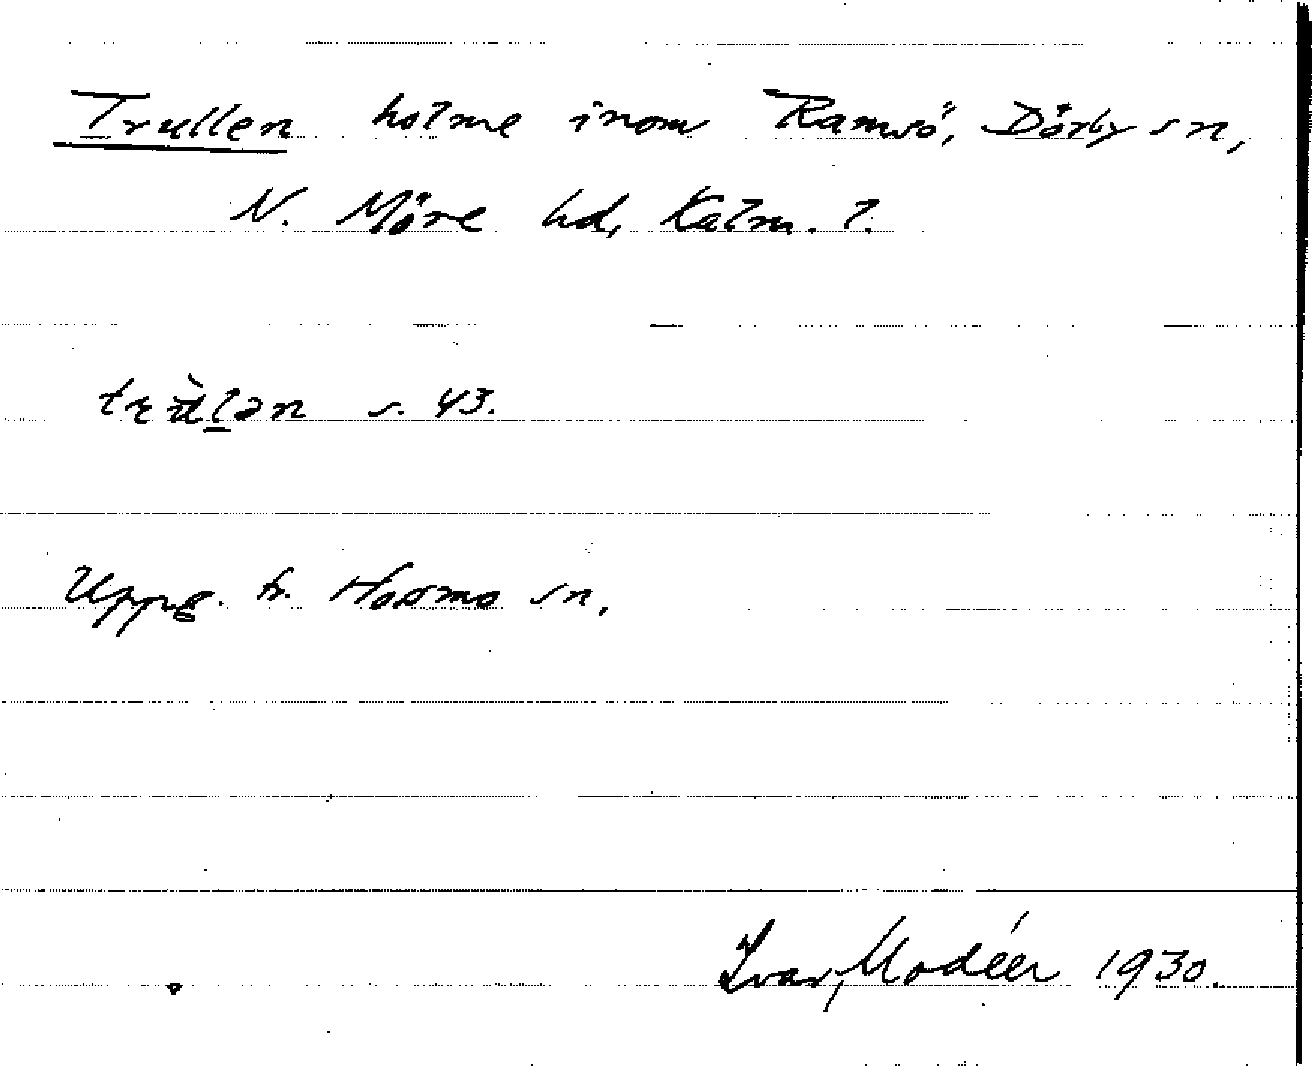 Trullen holme inom Ramsö, Dörby sn,
N. Möre hd, Kalm. l.
s. 43.
Uppg. fr. Hossmo sn.
Ivar Modéer 1930.